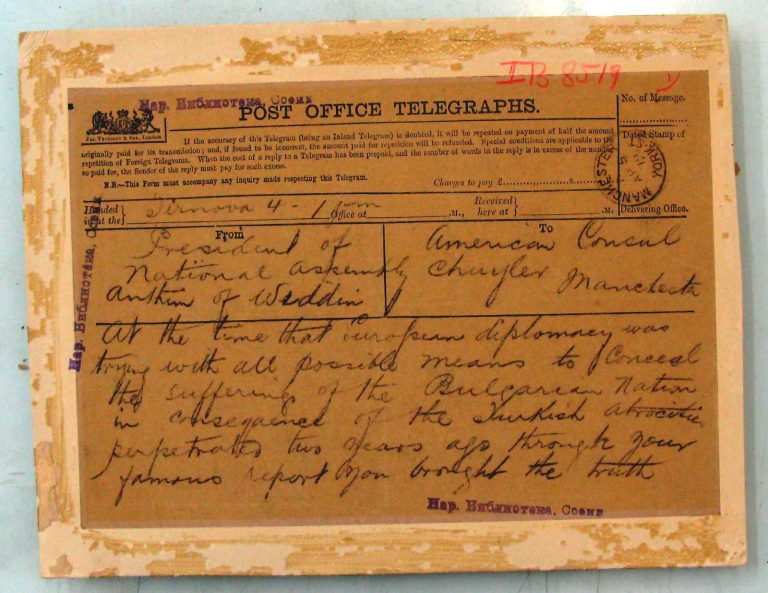 IB 8519 1)
Нар. Библиотека, София
POST OFFICE TELEGRAPHS.
No. of Message.
If the accuracy of this Telegram (being an Inland Telegram) is doubted, it will be repeated on payment of half the amount
originally paid for its transmission; and, if found to be incorrect, the amount paid for repetition will be refunded. Special conditions are applicable to the
repetition of Foreign Telegrams. When the cost of a reply to a Telegram has been prepaid, and the number of words in the reply is in excess of the number
so paid for, the Sender of the reply must pay for such excess.
N.B.—This Form must accompany any inquiry made respecting this Telegram.
Charges to pay £
Dated Stamp of
MANCHESTER
Delivering Office.
Handed in at the Tirnova 4 - 1 pm Office at .M., Received here at .M.
From
To
President of
National Assembly
Anthim of Widdin
American Consul
Chuyler Manchester
At the time that European diplomacy was
trying with all possible means to conceal
the sufferings of the Bulgarian Nation
in consequence of the Turkish atrocities
perpetrated two years ago through your
famous report you brought the truth
Нар. Библиотека, София
Нар. Библиотека, София